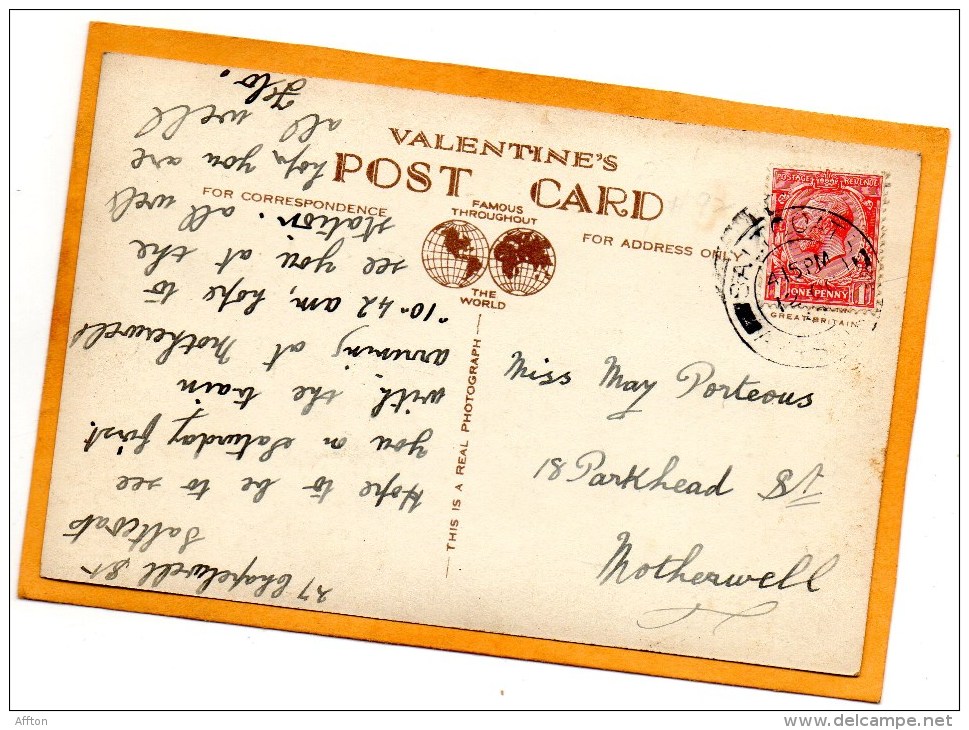 VALENTINE'S
POST CARD
FOR CORRESPONDENCE
FAMOUS
THROUGHOUT
THE
WORLD
FOR ADDRESS ONLY
THIS IS A REAL PHOTOGRAPH
POSTAGE REVENUE
ONE PENNY
GREAT BRITAIN
4 15 PM
Miss May Porteous
18 Parkhead St
Motherwell
27 Chapelwell St
Saltcoats
Hope to be to see
you on Saturday first.
with the train
arriving at Motherwell
"10-42 am, hope to
see you at the
station. all well
hope you are
all well
Flo.
Affton
delcampe.net